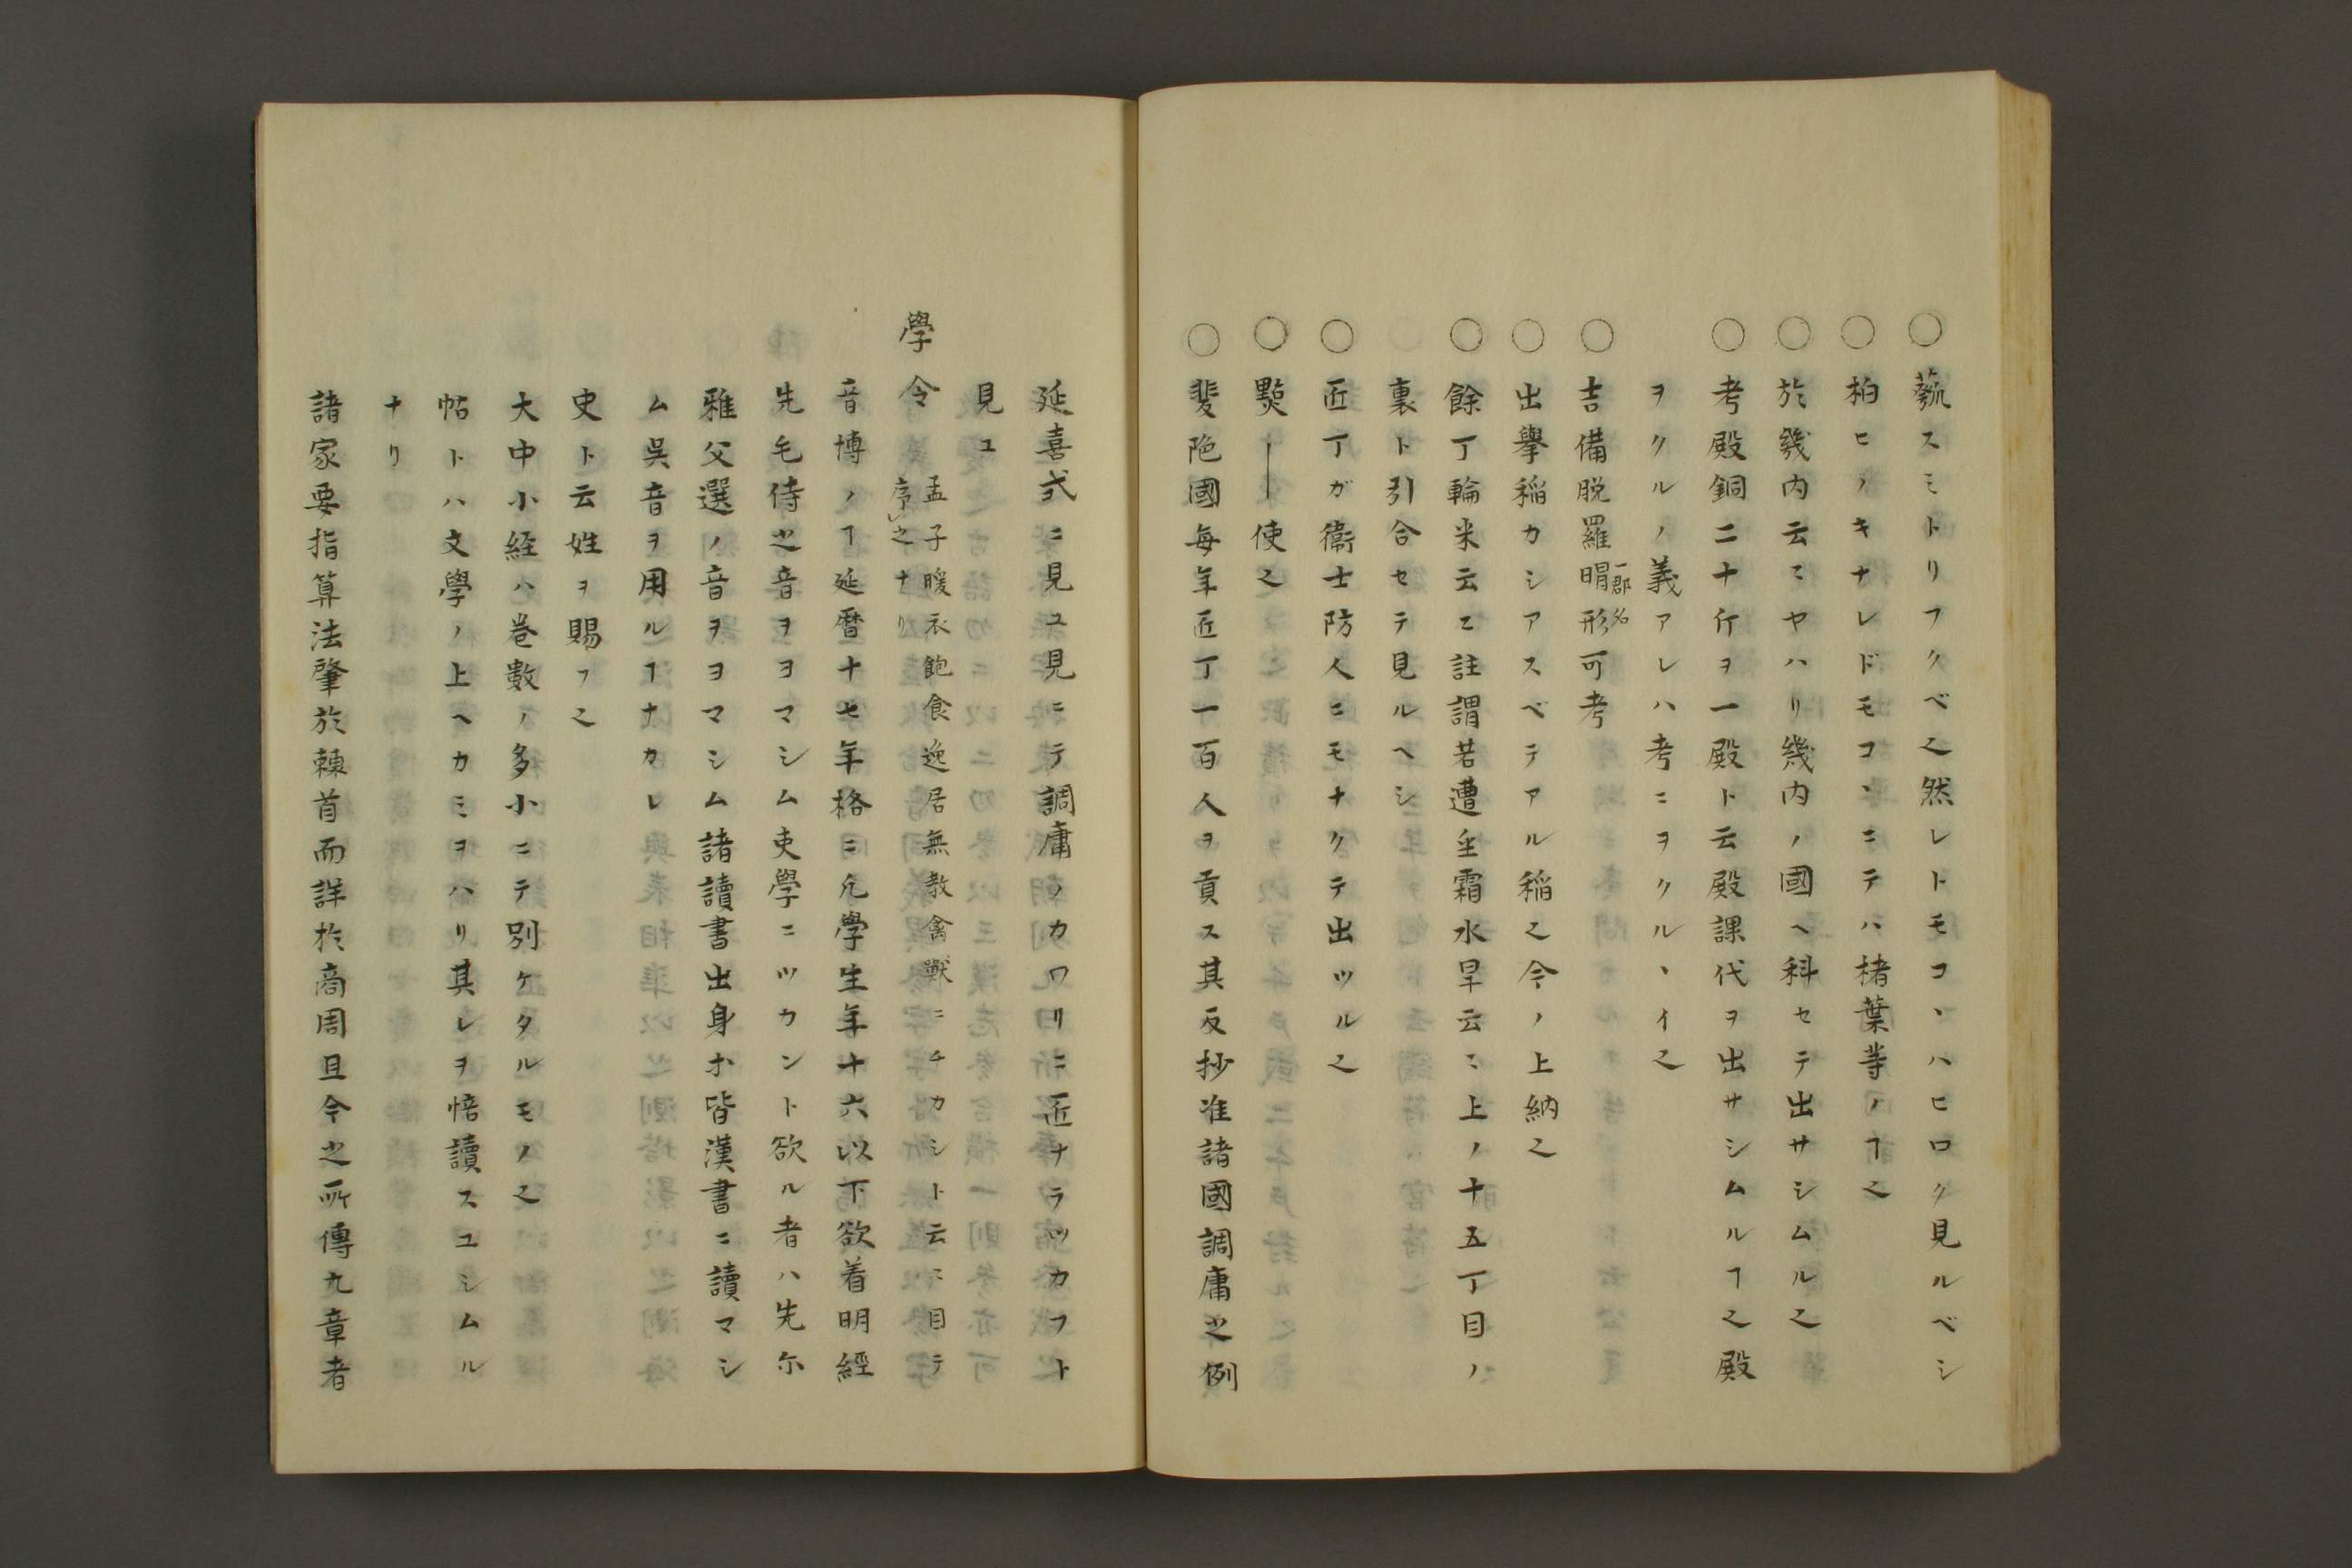 ○蓺スミトリフクベ之然レトモコヽハヒロク見ルベシ
○柏ヒノキナレドモコヽニテハ楮葉等ノヿ之
○於幾内云〻ヤハリ幾内ノ國ヘ科セテ出サシムル之
○考殿銅二十斤ヲ一殿ト云殿課代ヲ出サシムルヿ之殿
ヲクルノ義アレハ考ニヲクルヽイ之
○吉備脱羅㫾形可考
一郡名
○出擧稲カシアスベテアル稲之今ノ上納之
○餘丁輪米云〻註謂若遭蛍霜水旱云〻上ノ十五丁目ノ
裏ト引合セテ見ルヘシ
○匠丁ガ衞士防人ニモナクテ出ツル之
○㸃｜使之
○斐陁國每年匠丁一百人ヲ貢ス其反抄准諸國調庸之例
延喜式ニ見ユ見ニテ調庸ノカワリニ匠ナラツカフト
見ユ
學令
孟子暖衣飽食逸居無教禽獸ニチカシト云〻目テ
序之ナリ
音博ノヿ延暦十七年格ニ凡學生年十六以下欲着明經
先毛侍之音ヲヨマシム吏學ニツカント欲ル者ハ先尓
雅父選ノ音ヲヨマシム諸讀書出身ホ皆漢書ニ讀マシ
ム吳音ヲ用ルヿナカレ
史ト云姓ヲ賜フ之
大中小経ハ巻數ノ多小ニテ別ケタルモノ之
帖トハ文學ノ上ヘカミヲハリ其レヲ悟讀スユシムル
ナリ
諸家要指算法肇於輳首而詳於商周且今之所傳九章者